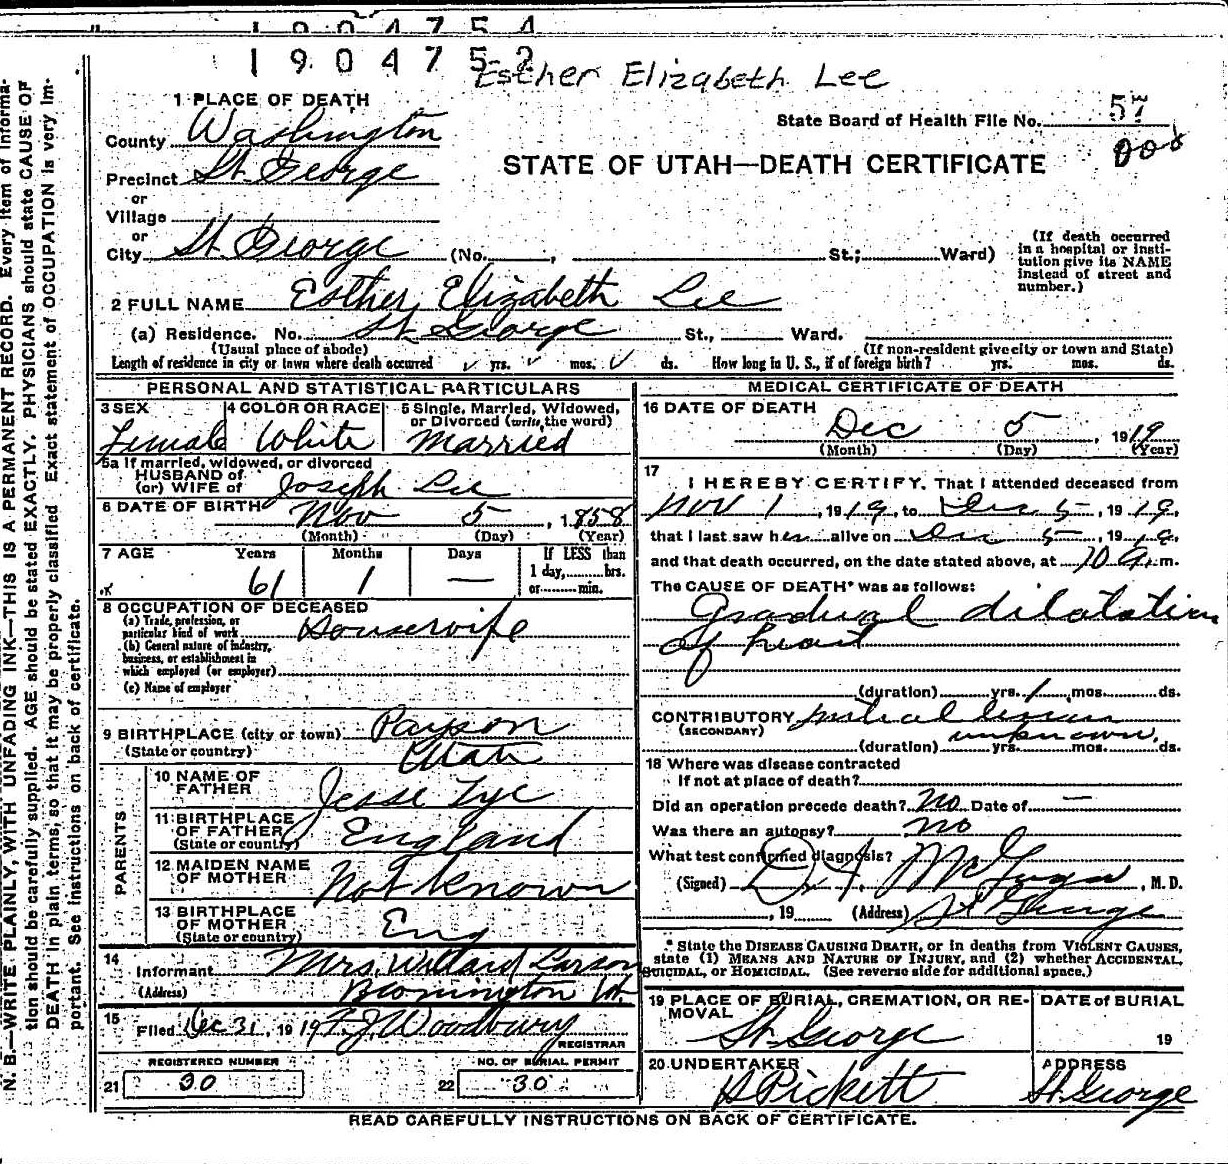 1904754
1904752
Esther Elizabeth Lee
1 PLACE OF DEATH
County Washington
Precinct St. George
or
Village
or
City St. George (No. , St.; Ward)
State Board of Health File No. 57
STATE OF UTAH—DEATH CERTIFICATE
(If death occurred
in a hospital or insti-
tution give its NAME
instead of street and
number.)
2 FULL NAME Esther Elizabeth Lee
(a) Residence. No. St. George St., Ward.
(Usual place of abode) (If non-resident give city or town and State)
Length of residence in city or town where death occurred yrs. mos. ds. How long in U. S., if of foreign birth? yrs. mos. ds.
PERSONAL AND STATISTICAL PARTICULARS
3 SEX
Female
4 COLOR OR RACE
White
5 Single, Married, Widowed,
or Divorced (write the word)
Married
5a If married, widowed, or divorced
HUSBAND of
(or) WIFE of Joseph Lee
6 DATE OF BIRTH Nov 5, 1858
(Month) (Day) (Year)
7 AGE Years Months Days
61 1 —
If LESS than
1 day,........hrs.
or.........min.
8 OCCUPATION OF DECEASED
(a) Trade, profession, or
particular kind of work Housewife
(b) General nature of industry,
business, or establishment in
which employed (or employer)
(c) Name of employer
9 BIRTHPLACE (city or town) Payson
(State or country) Utah
PARENTS
10 NAME OF
FATHER Jesse Tye
11 BIRTHPLACE
OF FATHER
(State or country) England
12 MAIDEN NAME
OF MOTHER Not Known
13 BIRTHPLACE
OF MOTHER
(State or country) Eng
14
Informant Mrs. Willard Larson
(Address) Bloomington Ut.
15
Filed Dec 31, 1919 F. J. Woodbury
REGISTRAR
REGISTERED NUMBER
21 30
NO. OF BURIAL PERMIT
22 30
MEDICAL CERTIFICATE OF DEATH
16 DATE OF DEATH
Dec 5, 1919
(Month) (Day) (Year)
17
I HEREBY CERTIFY, That I attended deceased from
Nov 1, 1919, to Dec 5, 1919,
that I last saw her alive on Dec 5, 1919,
and that death occurred, on the date stated above, at 10 A.m.
The CAUSE OF DEATH* was as follows:
Gradual dilatation
of heart
(duration) yrs. 1 mos. ds.
CONTRIBUTORY mitral lesion
(SECONDARY) unknown.
(duration) yrs. mos. ds.
18 Where was disease contracted
If not at place of death?
Did an operation precede death? No Date of —
Was there an autopsy? no
What test confirmed diagnosis?
(Signed) D. A. McGregor, M. D.
, 19 (Address) St George
* State the DISEASE CAUSING DEATH, or in deaths from VIOLENT CAUSES,
state (1) MEANS AND NATURE OF INJURY, and (2) whether ACCIDENTAL,
SUICIDAL, or HOMICIDAL. (See reverse side for additional space.)
19 PLACE OF BURIAL, CREMATION, OR RE-
MOVAL
St. George
DATE of BURIAL
19
20 UNDERTAKER
Pickett
ADDRESS
St. George
READ CAREFULLY INSTRUCTIONS ON BACK OF CERTIFICATE.
N. B.—WRITE PLAINLY, WITH UNFADING INK—THIS IS A PERMANENT RECORD. Every item of Informa-
tion should be carefully supplied. AGE should be stated EXACTLY. PHYSICIANS should state CAUSE OF
DEATH in plain terms, so that it may be properly classified. Exact statement of OCCUPATION is very im-
portant. See instructions on back of certificate.